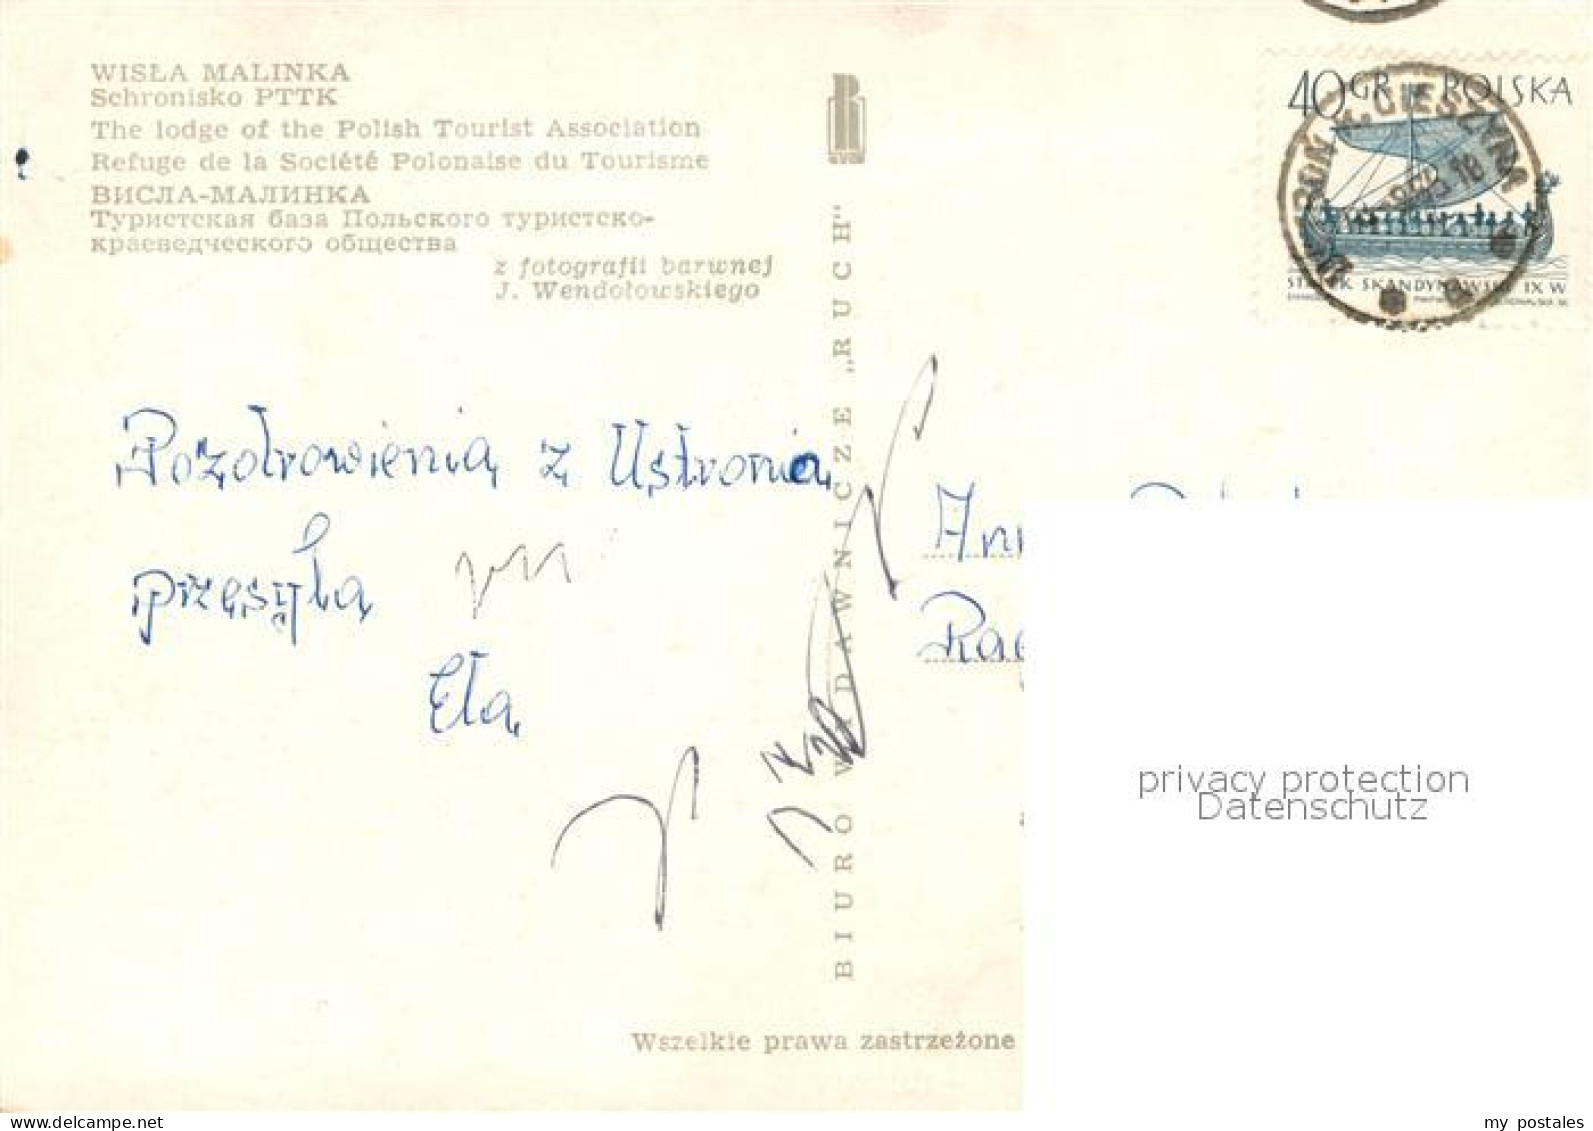 WISŁA MALINKA
Schronisko PTTK
The lodge of the Polish Tourist Association
Refuge de la Société Polonaise du Tourisme
ВИСЛА-МАЛИНКА
Туристская база Польского туристско-
краеведческого общества
z fotografii barwnej
J. Wendołowskiego
40 GR POLSKA
STATEK SKANDYNAWSKI IX W
BIURO WYDAWNICZE „RUCH"
Pozdrowienia z Ustronia
przesyła
Ela
Wszelkie prawa zastrzeżone
privacy protection
Datenschutz
my postales